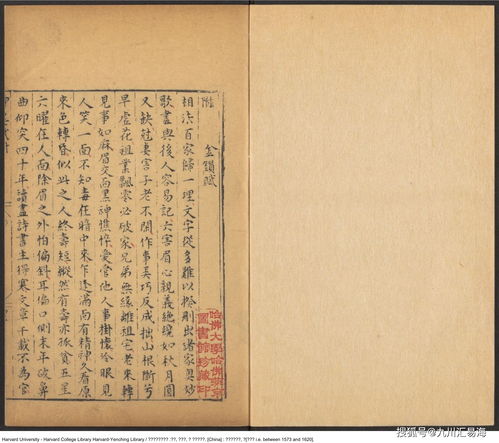 附
金鎖賦
相法百家歸一理文字從多難以揆刪出諸家奧妙
歌盡與後人容易記六害眉心親義絶纔如秋月圓
又缺尅妻害子老不閑作事弄巧反成拙山根斷兮
早虛花祖業飄零必破家兄弟無緣離祖宅老來轉
見事如麻眉交面黑神憔悴愛管他人事掛懷冷眼見
人笑一面不知毒在暗中來乍逢滿面有精神久看原
來色轉昏似此之人終壽短縱然有壽亦孤貧五星
六曜在人面除眉之外怕偏斜耳偏口側末年破鼻
曲仰突四十年讀盡詩書生得寒文章千載不為官
哈佛大學哈佛燕京
圖書館珍藏印
Harvard University - Harvard College Library Harvard-Yenching Library / ???????? ??, ???. ? ?????. [China] : ??????, ?[??? i.e. between 1573 and 1620].
搜狐号@九川汇易海